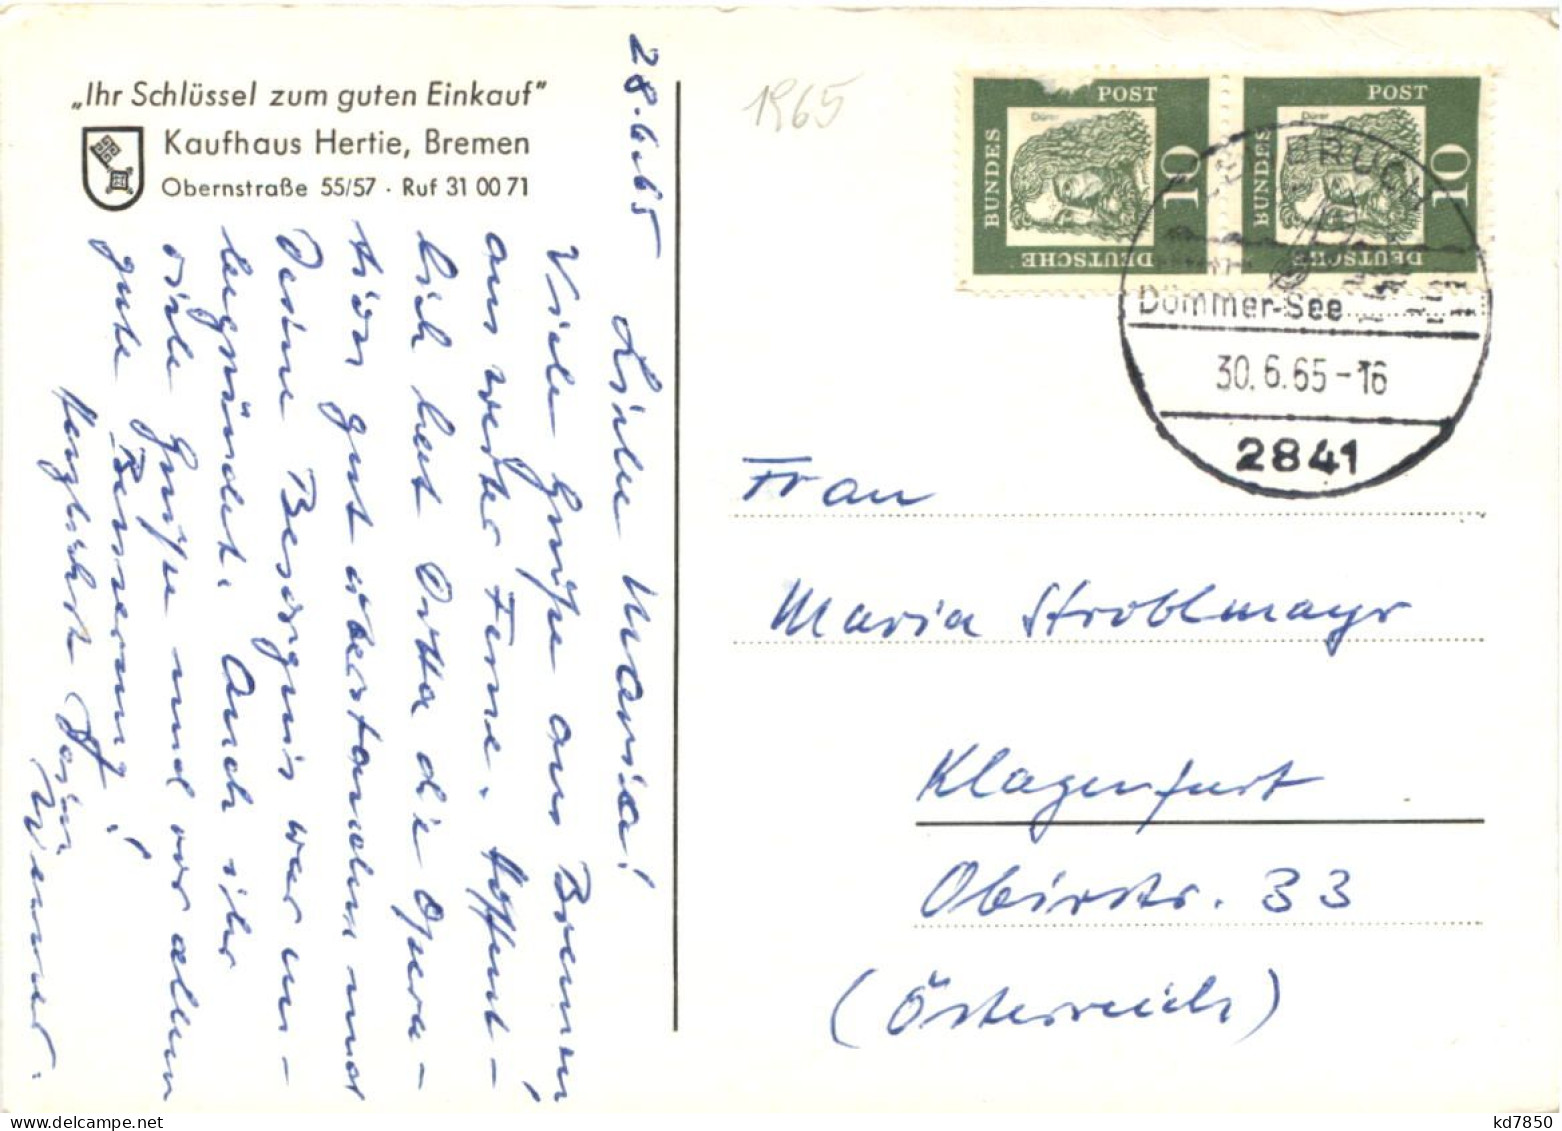 „Ihr Schlüssel zum guten Einkauf"
Kaufhaus Hertie, Bremen
Obernstraße 55/57 · Ruf 31 00 71
28.6.65
Liebe Maria!
Viele Grüße aus Bremen
aus weiter Ferne. Hoffent-
lich hat Otto die Opera-
tion gut überstanden und
Deine Besorgnis war un-
begründet. Auch ihr
viele Grüße und vor allem
gute Besserung!
Herzlichst Dein
Werner.
1965
POST
10
BUNDES
DEUTSCHE
Dürer
POST
10
BUNDES
DEUTSCHE
Dürer
Dümmer-See
30.6.65-16
2841
Frau
Maria Stroblmayr
Klagenfurt
Obirstr. 33
(Österreich)
www.delcampe.net
kd7850